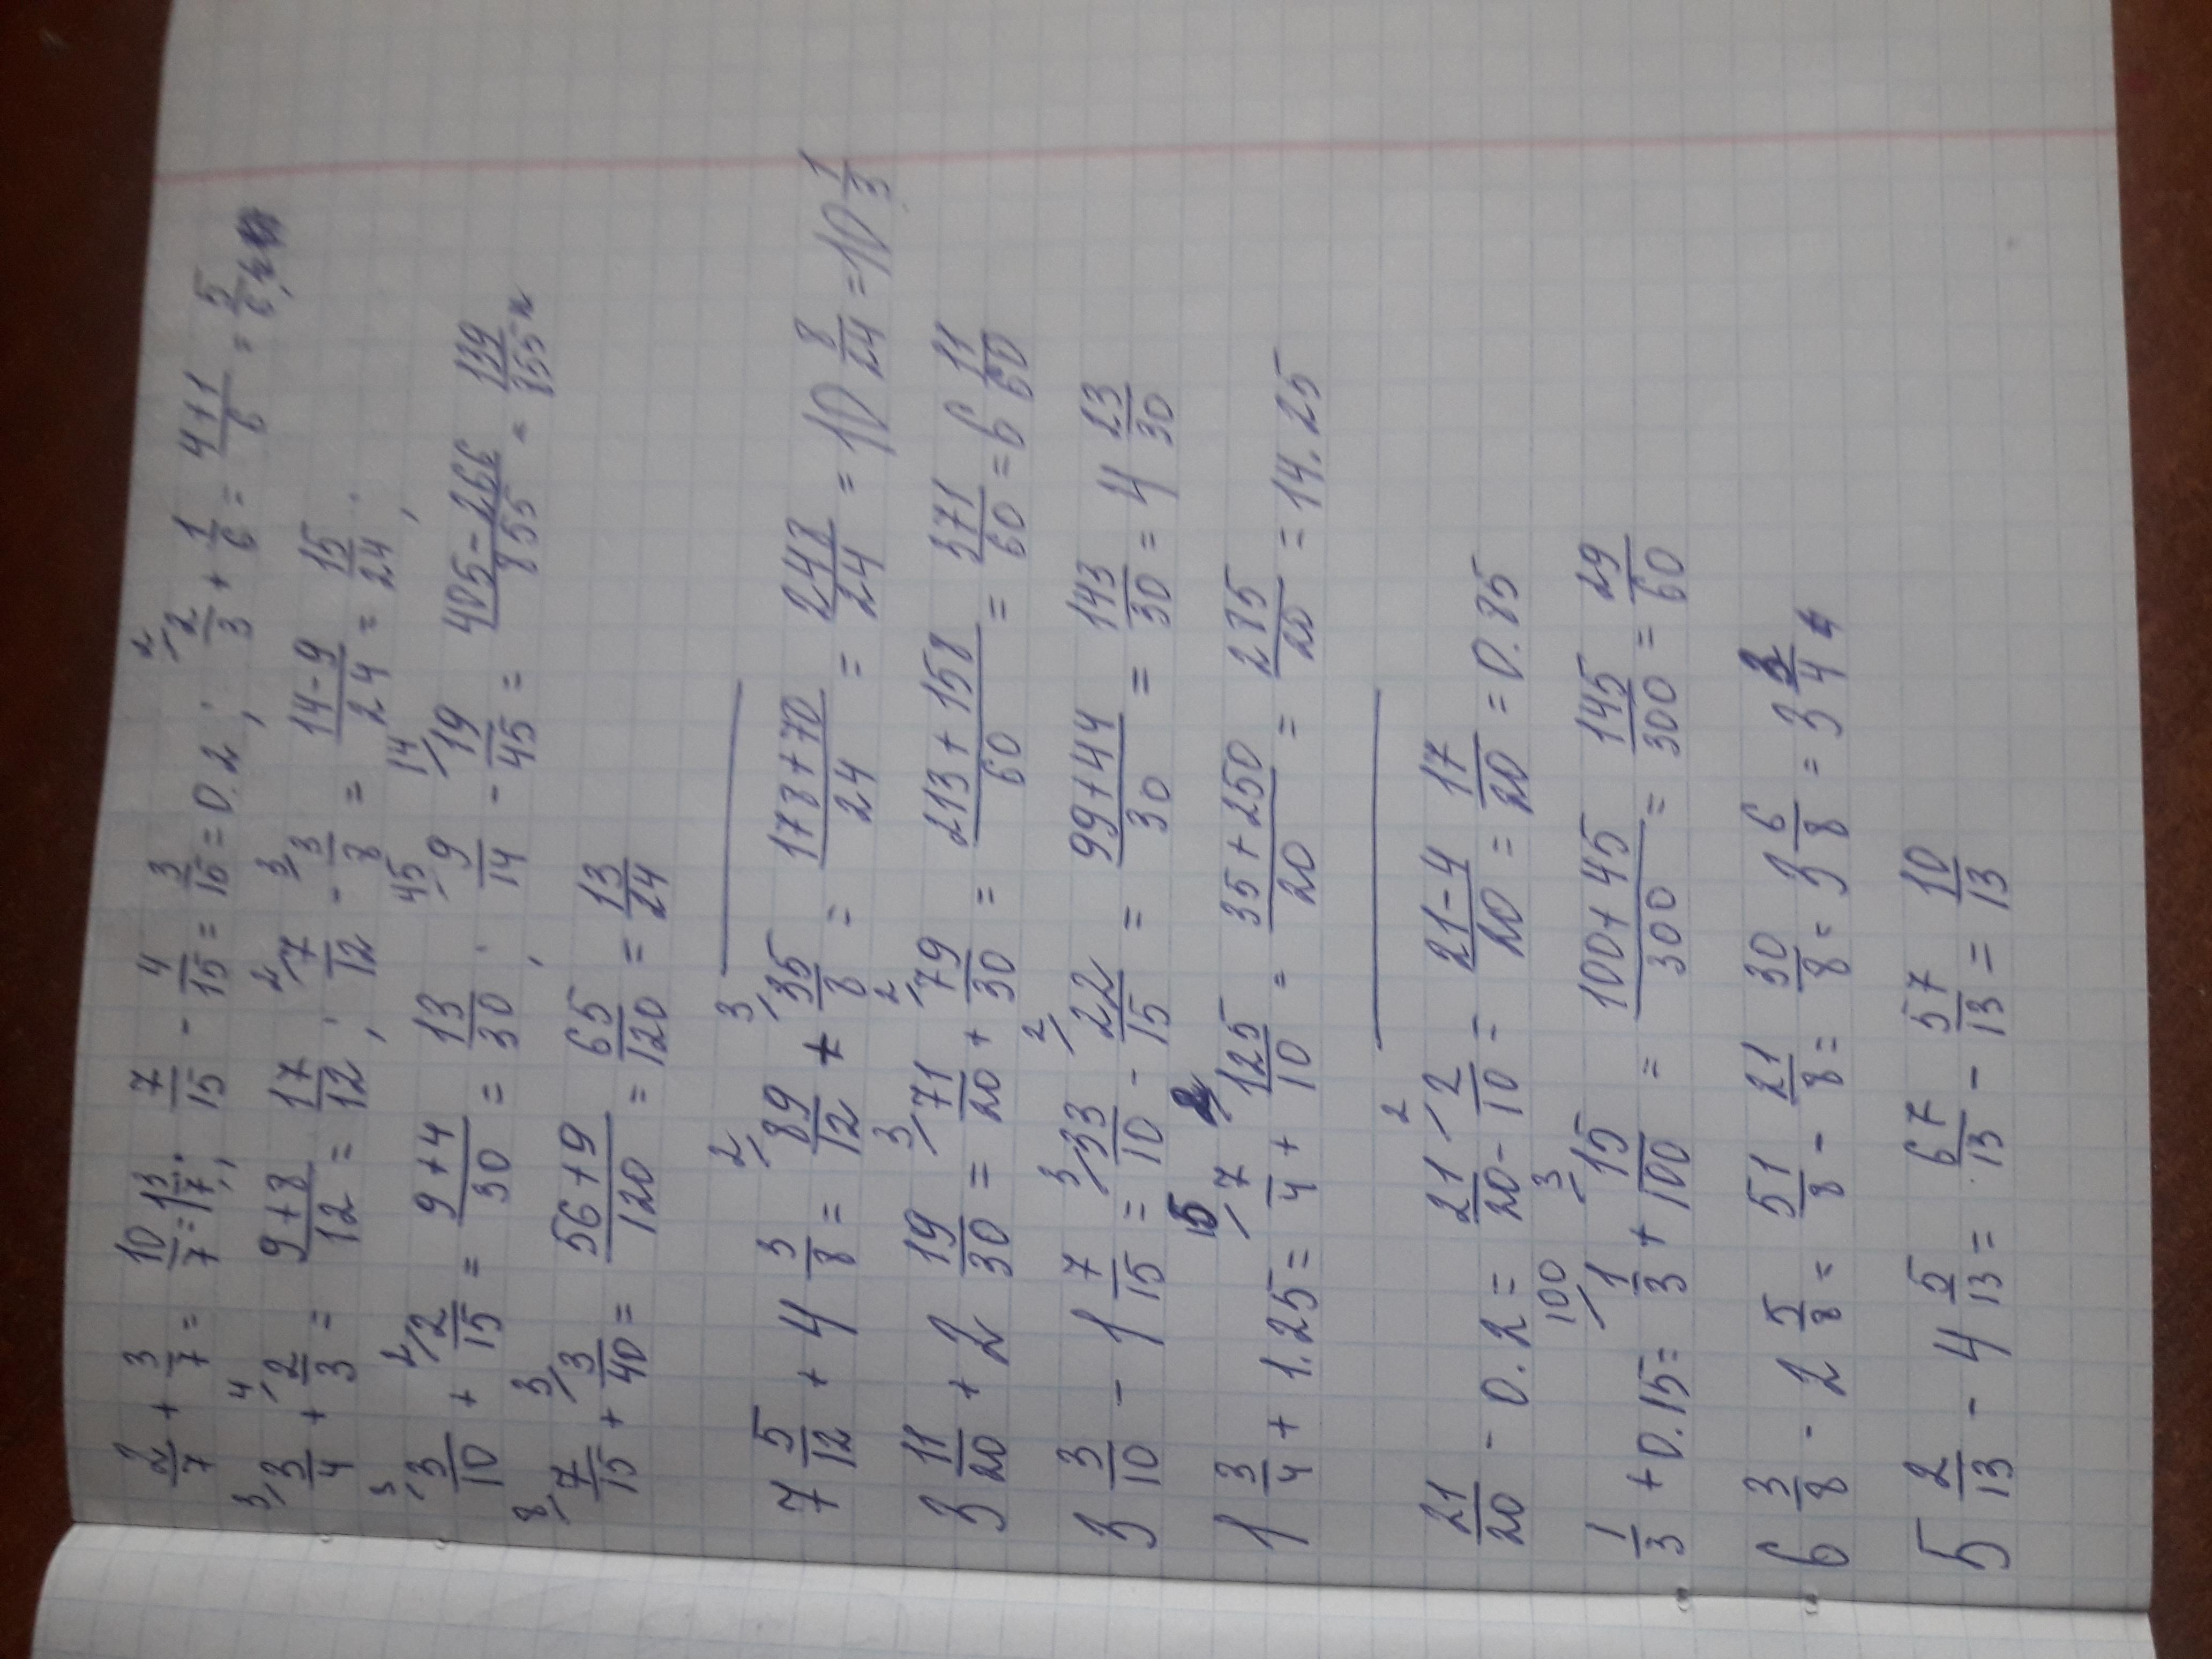 2/7 + 3/7 = 10/7 = 1 3/7; 7/15 - 4/15 = 3/15 = 0.2; ²⁄ 2/3 + 1/6 = (4+1)/6 = 5/6
³⁄ 3/4 + ⁴⁄ 2/3 = (9+8)/12 = 17/12; ²⁄ 7/12 - ³⁄ 3/8 = (14-9)/24 = 15/24;
³⁄ 3/10 + ²⁄ 2/15 = (9+4)/30 = 13/30; ⁴⁵⁄ 9/14 - ¹⁴⁄ 19/45 = (405-266)/855 = 139/855
⁸⁄ 7/15 + ³⁄ 3/40 = (56+9)/120 = 65/120 = 13/24
7 5/12 + 4 3/8 = ²⁄ 89/12 + ³⁄ 35/8 = (178+70)/24 = 248/24 = 10 8/24 = 10 1/3
3 11/20 + 2 19/30 = ³⁄ 71/20 + ²⁄ 79/30 = (213+158)/60 = 371/60 = 6 11/60
3 3/10 - 1 7/15 = ³⁄ 33/10 - ²⁄ 22/15 = (99+44)/30 = 143/30 = 4 23/30
1 3/4 + 1.25 = ⁵⁄ 7/4 + ²⁄ 125/10 = (35+250)/20 = 285/20 = 14.25
21/20 - 0.2 = 21/20 - ²⁄ 2/10 = (21-4)/20 = 17/20 = 0.85
1/3 + 0.15 = ¹⁰⁰⁄ 1/3 + ³⁄ 15/100 = (100+45)/300 = 145/300 = 29/60
6 3/8 - 2 5/8 = 51/8 - 21/8 = 30/8 = 3 6/8 = 3 3/4
5 2/13 - 4 5/13 = 67/13 - 57/13 = 10/13